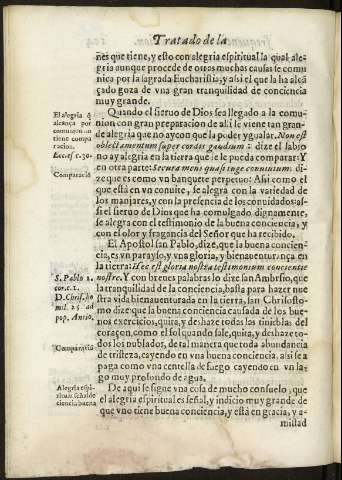 Tratado de la
ñes que tiene, y esto con alegria espiritual la qual ale-
gria aunque procede de otros muchas causas se comu
nica por la sagrada Eucharistia, y assi el que la alcã
çado goza de vna gran tranquilidad de conciencia
muy grande.
Quando el sieruo de Dios se a llegado a la comu-
nion con gran preparacion de alli le viene tan gran-
de alegria que no ay con que la poder ygualar. Non est
oblectamentum super cordis gaudium: dize el sabio
no ay alegria en la tierra que le le pueda comparar: Y
en otra parte: Secura mens quasi iuge conuiuium: di-
ze que es como vn banquete perpetuo: Assi como el
que está en vn conuite, se alegra con la variedad de
los manjares, y con la presencia de los conuidados: as-
si el sieruo de Dios que ha comulgado dignamente,
se alegra con el testimonio de la buena conciencia, y
con el olor y fragancia del Señor que ha recibido.
El Apostol san Pablo, dize, que la buena concien-
cia, es vn parayso, y vna gloria, y bienauenturança en
la tierra: Hæc est gloria nostra testimonium concientie
nostre. Y con breues palabras lo dize san Ambrosio, que
la tranquilidad de la conciencia, basta para hazer nue
stra vida bienauenturada en la tierra, san Chrisosto-
mo dize que la buena conciencia causada de los bue-
nos exercicios, quita, y deshaze todas las tinieblas del
coraçon, como el sol quando sale, quita, y deshaze to-
dos los nublados, de tal manera que toda abundancia
de tristeza, cayendo en vna buena conciencia, assi se a
paga como vna centella de fuego cayendo en vn la-
go muy profundo de agua.
De aqui se sigue vna cosa de mucho consuelo, que
el alegria espiritual es señal, y indicio muy grande de
que vno tiene buena conciencia, y està en gracia, y a-
mistad
El alegria q̃
alcança por
comunion no
tiene compa
racion.
Eccles. c. 30.
Comparaciõ
S. Pablo 2.
cor. c. 1.
D. Chriſ. ho
mil. 25 ad
pop. Antio.
Comparaciõ
Alegria espi-
ritual es señal de
ciencia buena